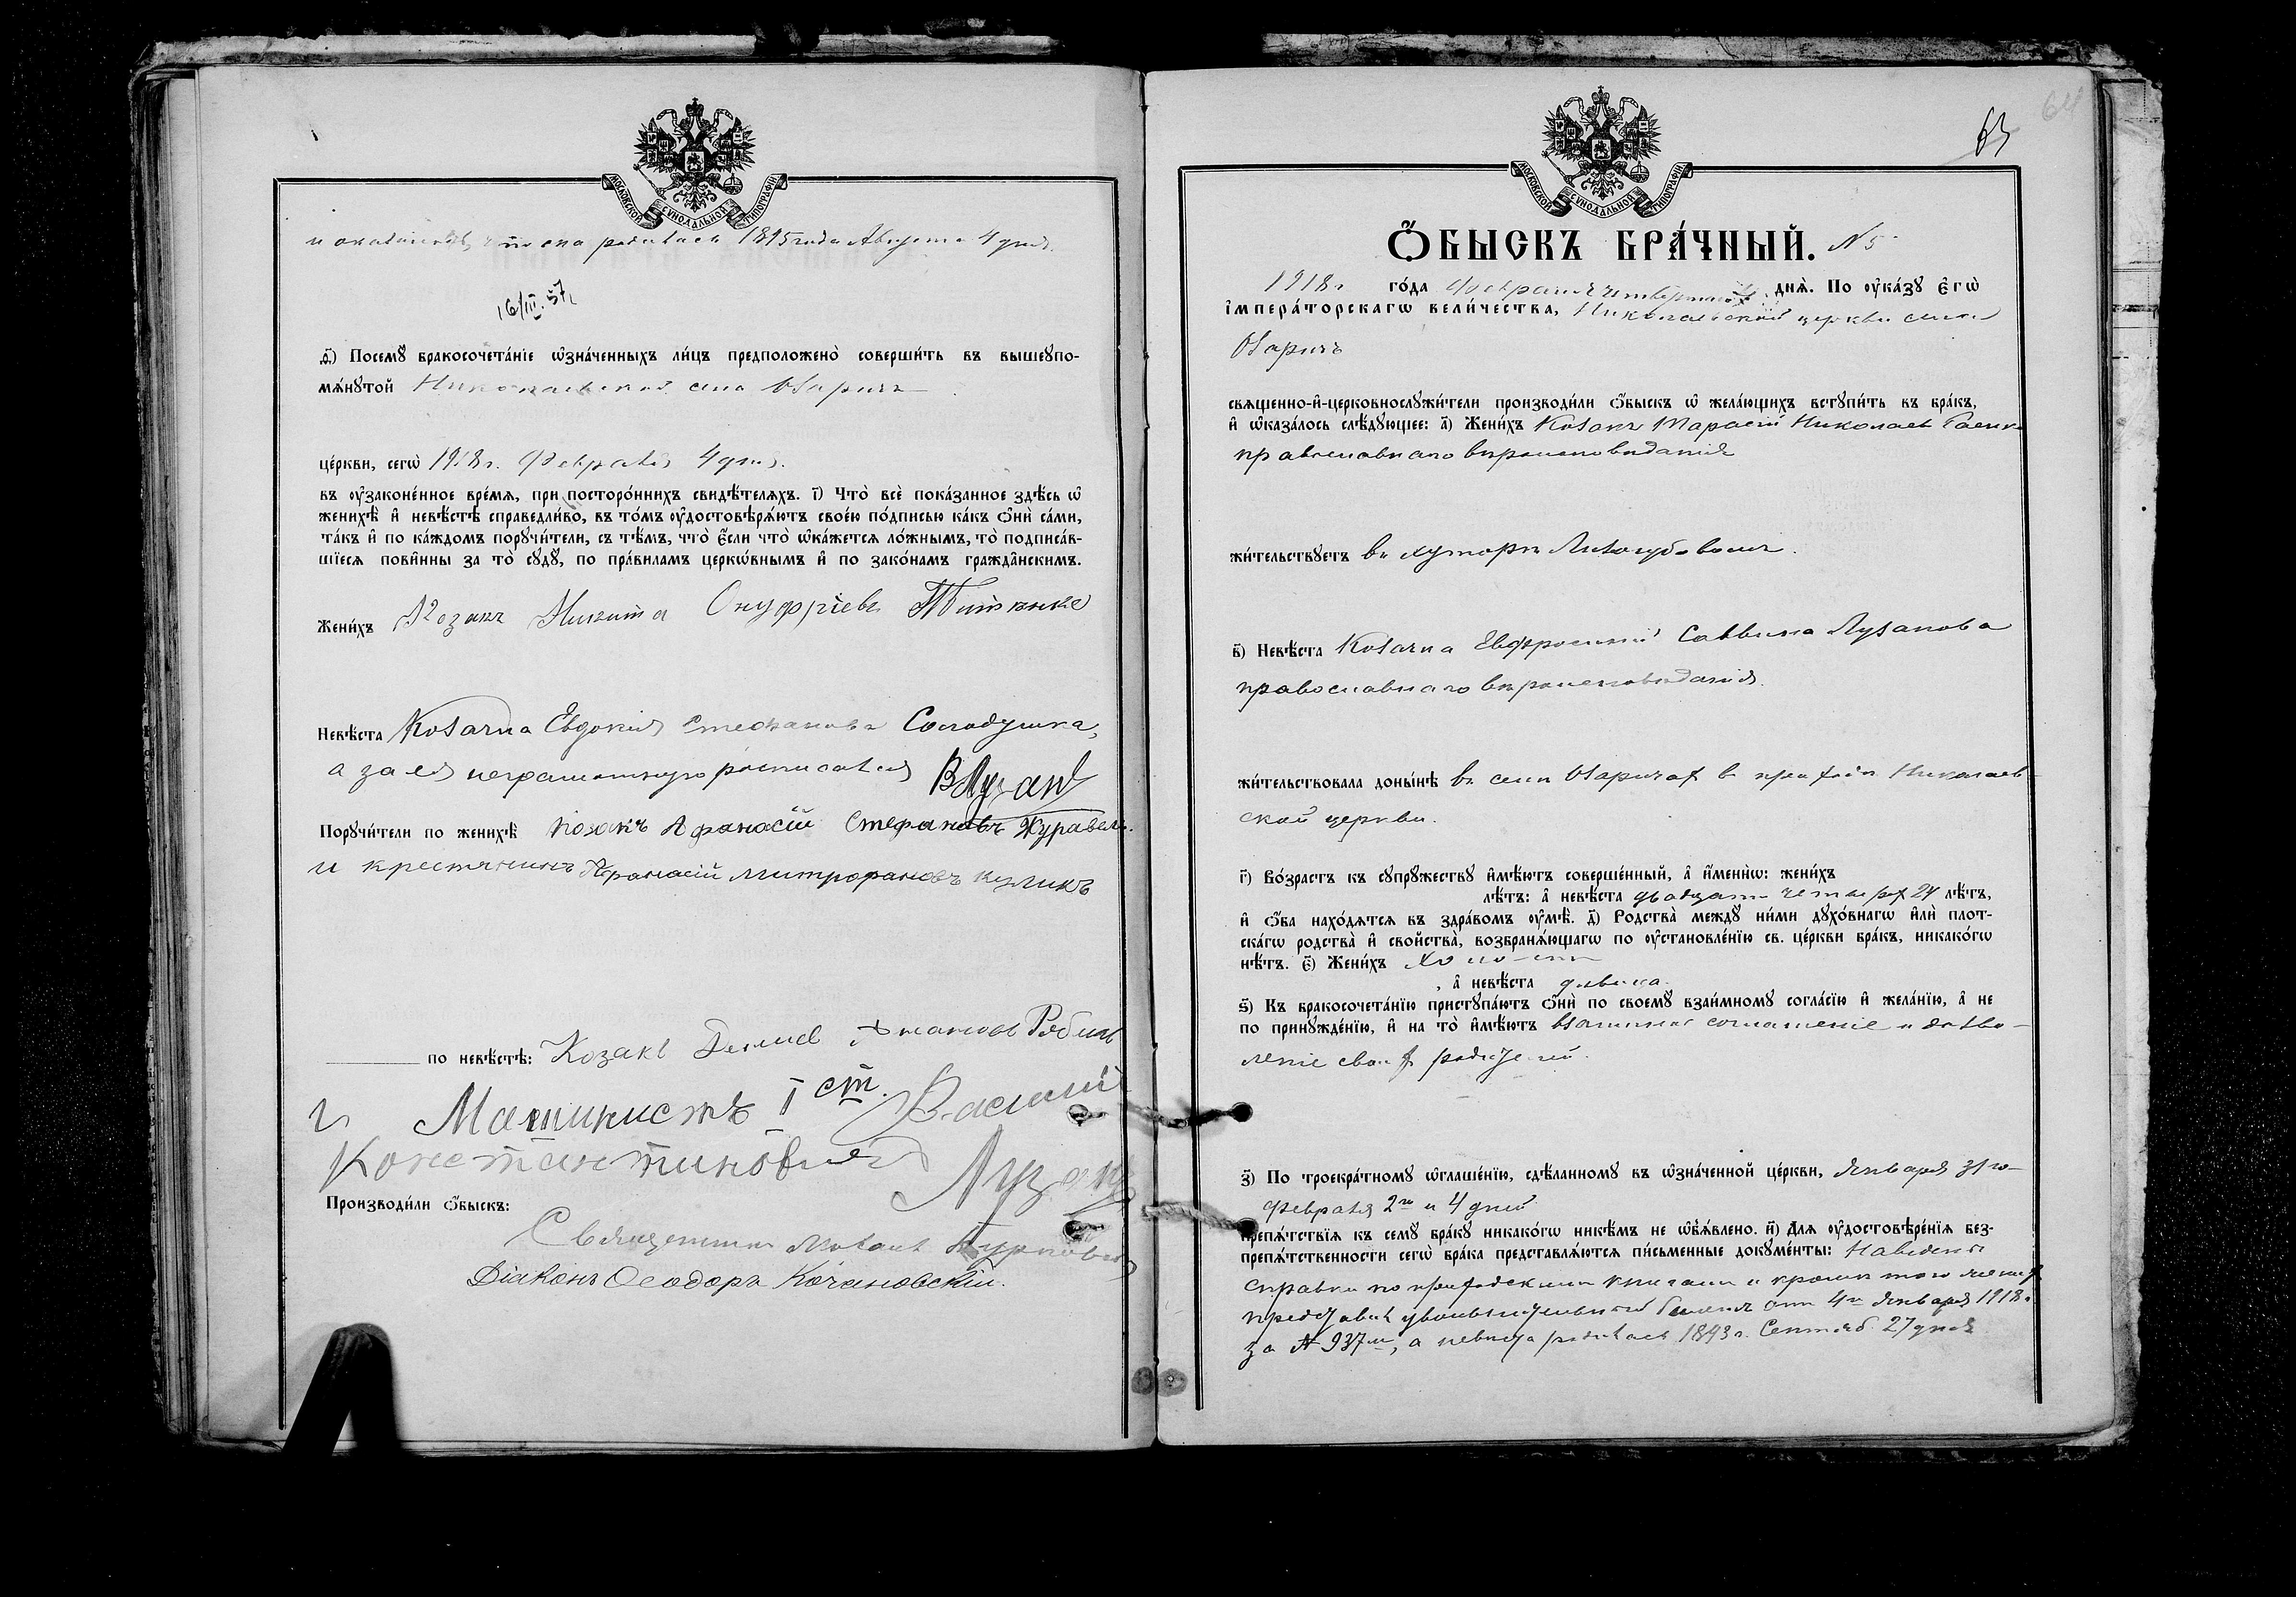 МОСКОВСКОЙ СѴНОДАЛЬНОЙ ТИПОГРАФІИ
и оказалось, что она родилась 1895 года Августа 4 дня.
16/III.57
ѳ҃) Посемꙋ бракосочета́ніе ѡ҆зна́ченныхъ ли́цъ предположено̀ соверши́ть въ вышеꙋпо-
мѧ́нꙋтой Николаевской села Озаричъ
це́ркви, сегѡ̀ 1918 г. Февраля 4 дня.
въ ᲂу҆законе́нное вре́мѧ, при посторо́ннихъ свидѣ́телѧхъ. і҃) Что̀ всѐ пока́занное здѣ́сь ѡ҆
женихѣ̀ и҆ невѣ́стѣ справедли́во, въ то́мъ ᲂу҆достовѣрѧ́ютъ свое́ю по́дписью ка́къ ѻ҆нѝ са́ми,
та́къ и҆ по ка́ждомъ порꙋчи́тели, съ тѣ́мъ, что̀ є҆́сли что̀ ѡ҆ка́жетсѧ ло́жнымъ, то̀ подписа́в-
шїесѧ пови́нны за то̀ сꙋдꙋ̀, по пра́виламъ церкѡ́внымъ и҆ по зако́намъ гражда̂нскимъ.
Жени́хъ Козакъ Никита Онуфріевъ
Невѣ́ста Козачка Евдокія Стефанова Солодушка,
а за ея неграмотную росписался В Лузан
Порꙋчи́тели по женихѣ̀ козакъ Афанасій Стефановъ Журавель
и крестянинъ Афанасій Митрофановъ куликъ
по невѣ́стѣ: Козакъ
и Машинистъ I ст. Василий
Константинович Лузан
Производи́ли ѻ҆́быскъ:
Священникъ
Діаконъ Ѳеодоръ Кочановскій.
64
63
МОСКОВСКОЙ СѴНОДАЛЬНОЙ ТИПОГРАФІИ
Ѻ҆́БЫСКЪ БРА́ЧНЫЙ. № 5
1918 г. го́да Февраля четвертаго днѧ̀. По ᲂу҆ка́зꙋ є҆гѡ̀
і҆мпера́торскагѡ вели́чества, Николаевской церкви села
Озаричъ
свѧщенно-и҆-церковнослꙋжи́тели производи́ли ѻ҆́быскъ ѡ҆ жела́ющихъ встꙋпи́ть въ бра́къ,
и҆ ѡ҆каза́лось слѣ́дꙋющее: а҃) Жени́хъ Козакъ Тарасій Николаевъ
православнаго вѣроисповѣданія
жи́тельствꙋетъ въ хуторѣ
в҃) Невѣ́ста Козачка Евфросинія Саввина Лузанова
православнаго вѣроисповѣданія.
жи́тельствовала доны́нѣ въ селѣ Озаричах в приходѣ Николаев-
ской церкви.
г҃) Во́зрастъ къ сꙋпрꙋ́жествꙋ и҆мѣ́ютъ соверше́нный, а҆ и҆́менѡ: жени́хъ
лѣ́тъ: а҆ невѣ́ста двадцати четырех 24 лѣ́тъ,
и҆ ѻ҆́ба нахо́дѧтсѧ въ здра́вомъ ᲂу҆мѣ̀. д҃) Родства̀ междꙋ̀ ни́ми дꙋхо́внагѡ и҆лѝ плот-
ска́гѡ родства̀ и҆ свойства̀, возбранѧ́ющагѡ по ᲂу҆становле́нїю св. це́ркви бра́къ, никако́гѡ
нѣ́тъ. є҃) Жени́хъ холостъ
, а҆ невѣ́ста дѣвица.
ѕ҃) Къ бракосочета́нїю пристꙋпа́ютъ ѻ҆нѝ по своемꙋ̀ взаи́мномꙋ согла́сїю и҆ жела́нїю, а҆ не
по принꙋжде́нїю, и҆ на то̀ и҆мѣ́ютъ взаимное соглашение и дозво-
ление своих родителей.
з҃) По троекра́тномꙋ ѡ҆глаше́нїю, сдѣ́ланномꙋ въ ѡ҆зна́ченной це́ркви, Января 31 го
Февраля 2го и 4 дней
препѧ́тствїѧ къ семꙋ̀ бра́кꙋ никако́гѡ никѣ́мъ не ѡ҆б̾ѧ́влено. и҃) Длѧ ᲂу҆достовѣре́нїѧ без-
препѧ́тственности сегѡ̀ бра́ка представлѧ́ютсѧ пи́сьменные докꙋме́нты: Наведены
справки по приходским книгамъ и кромѣ того жених
представил увольнительный билетъ отъ 4го Января 1918 г.
за № 937м, а невѣста родилась 1893 г. Сентяб. 27 дня